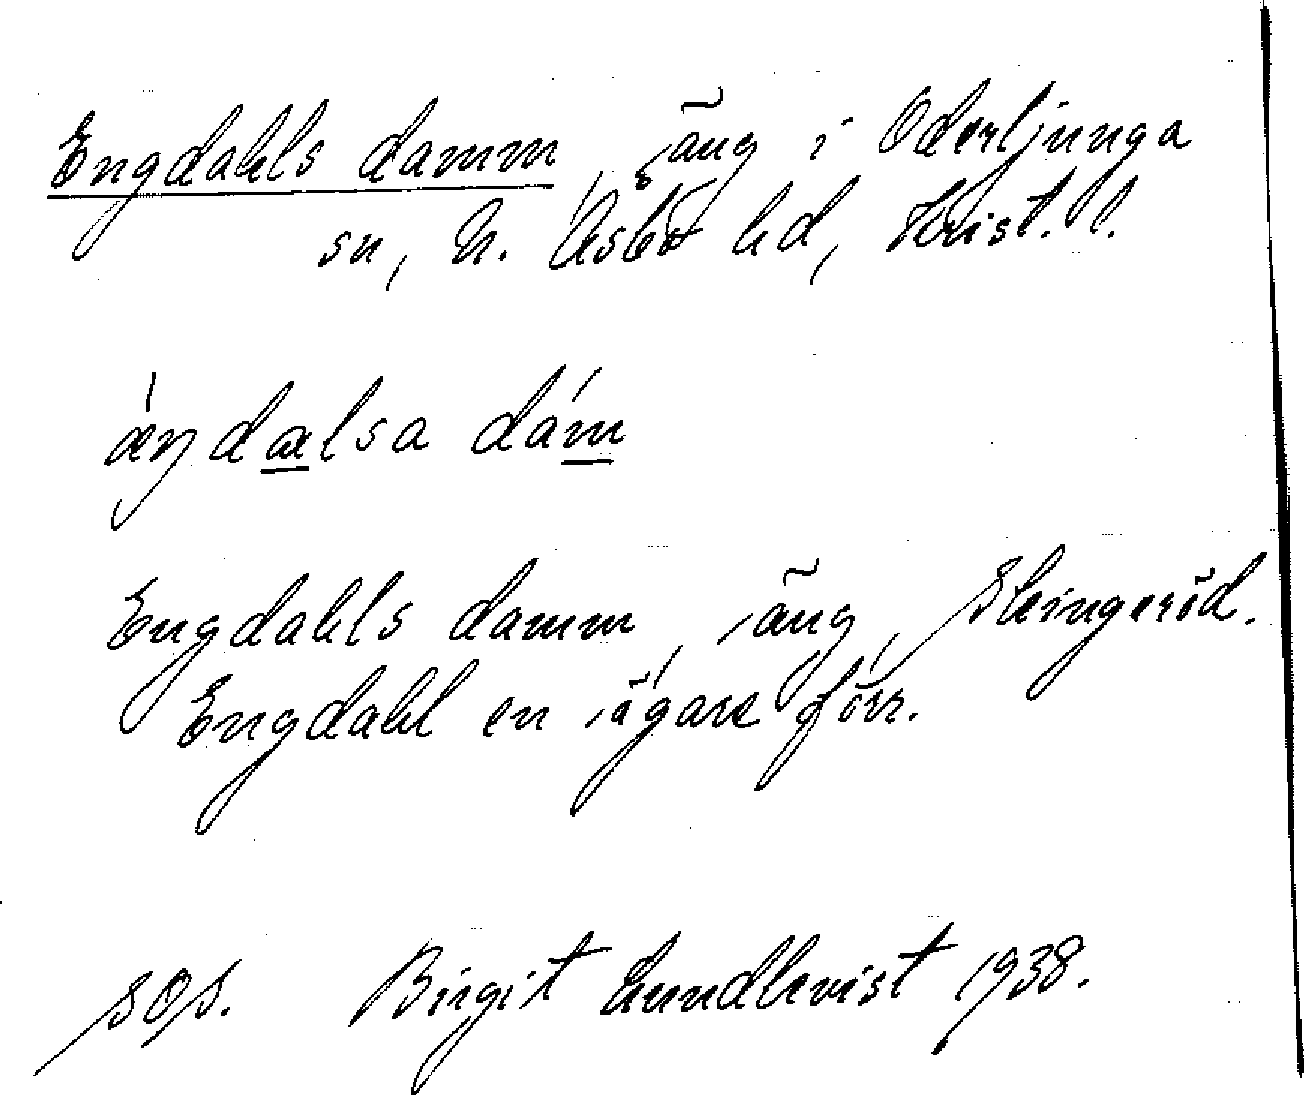 Engdahls damm, äng i Oderljunga
sn, N. Åsbo hd, Krist. l.
ǽŋdalsa dám
Engdahls damm, äng, Skingeröd.
Engdahl en ägare förr.
SOS. Birgit Lundkvist 1938.